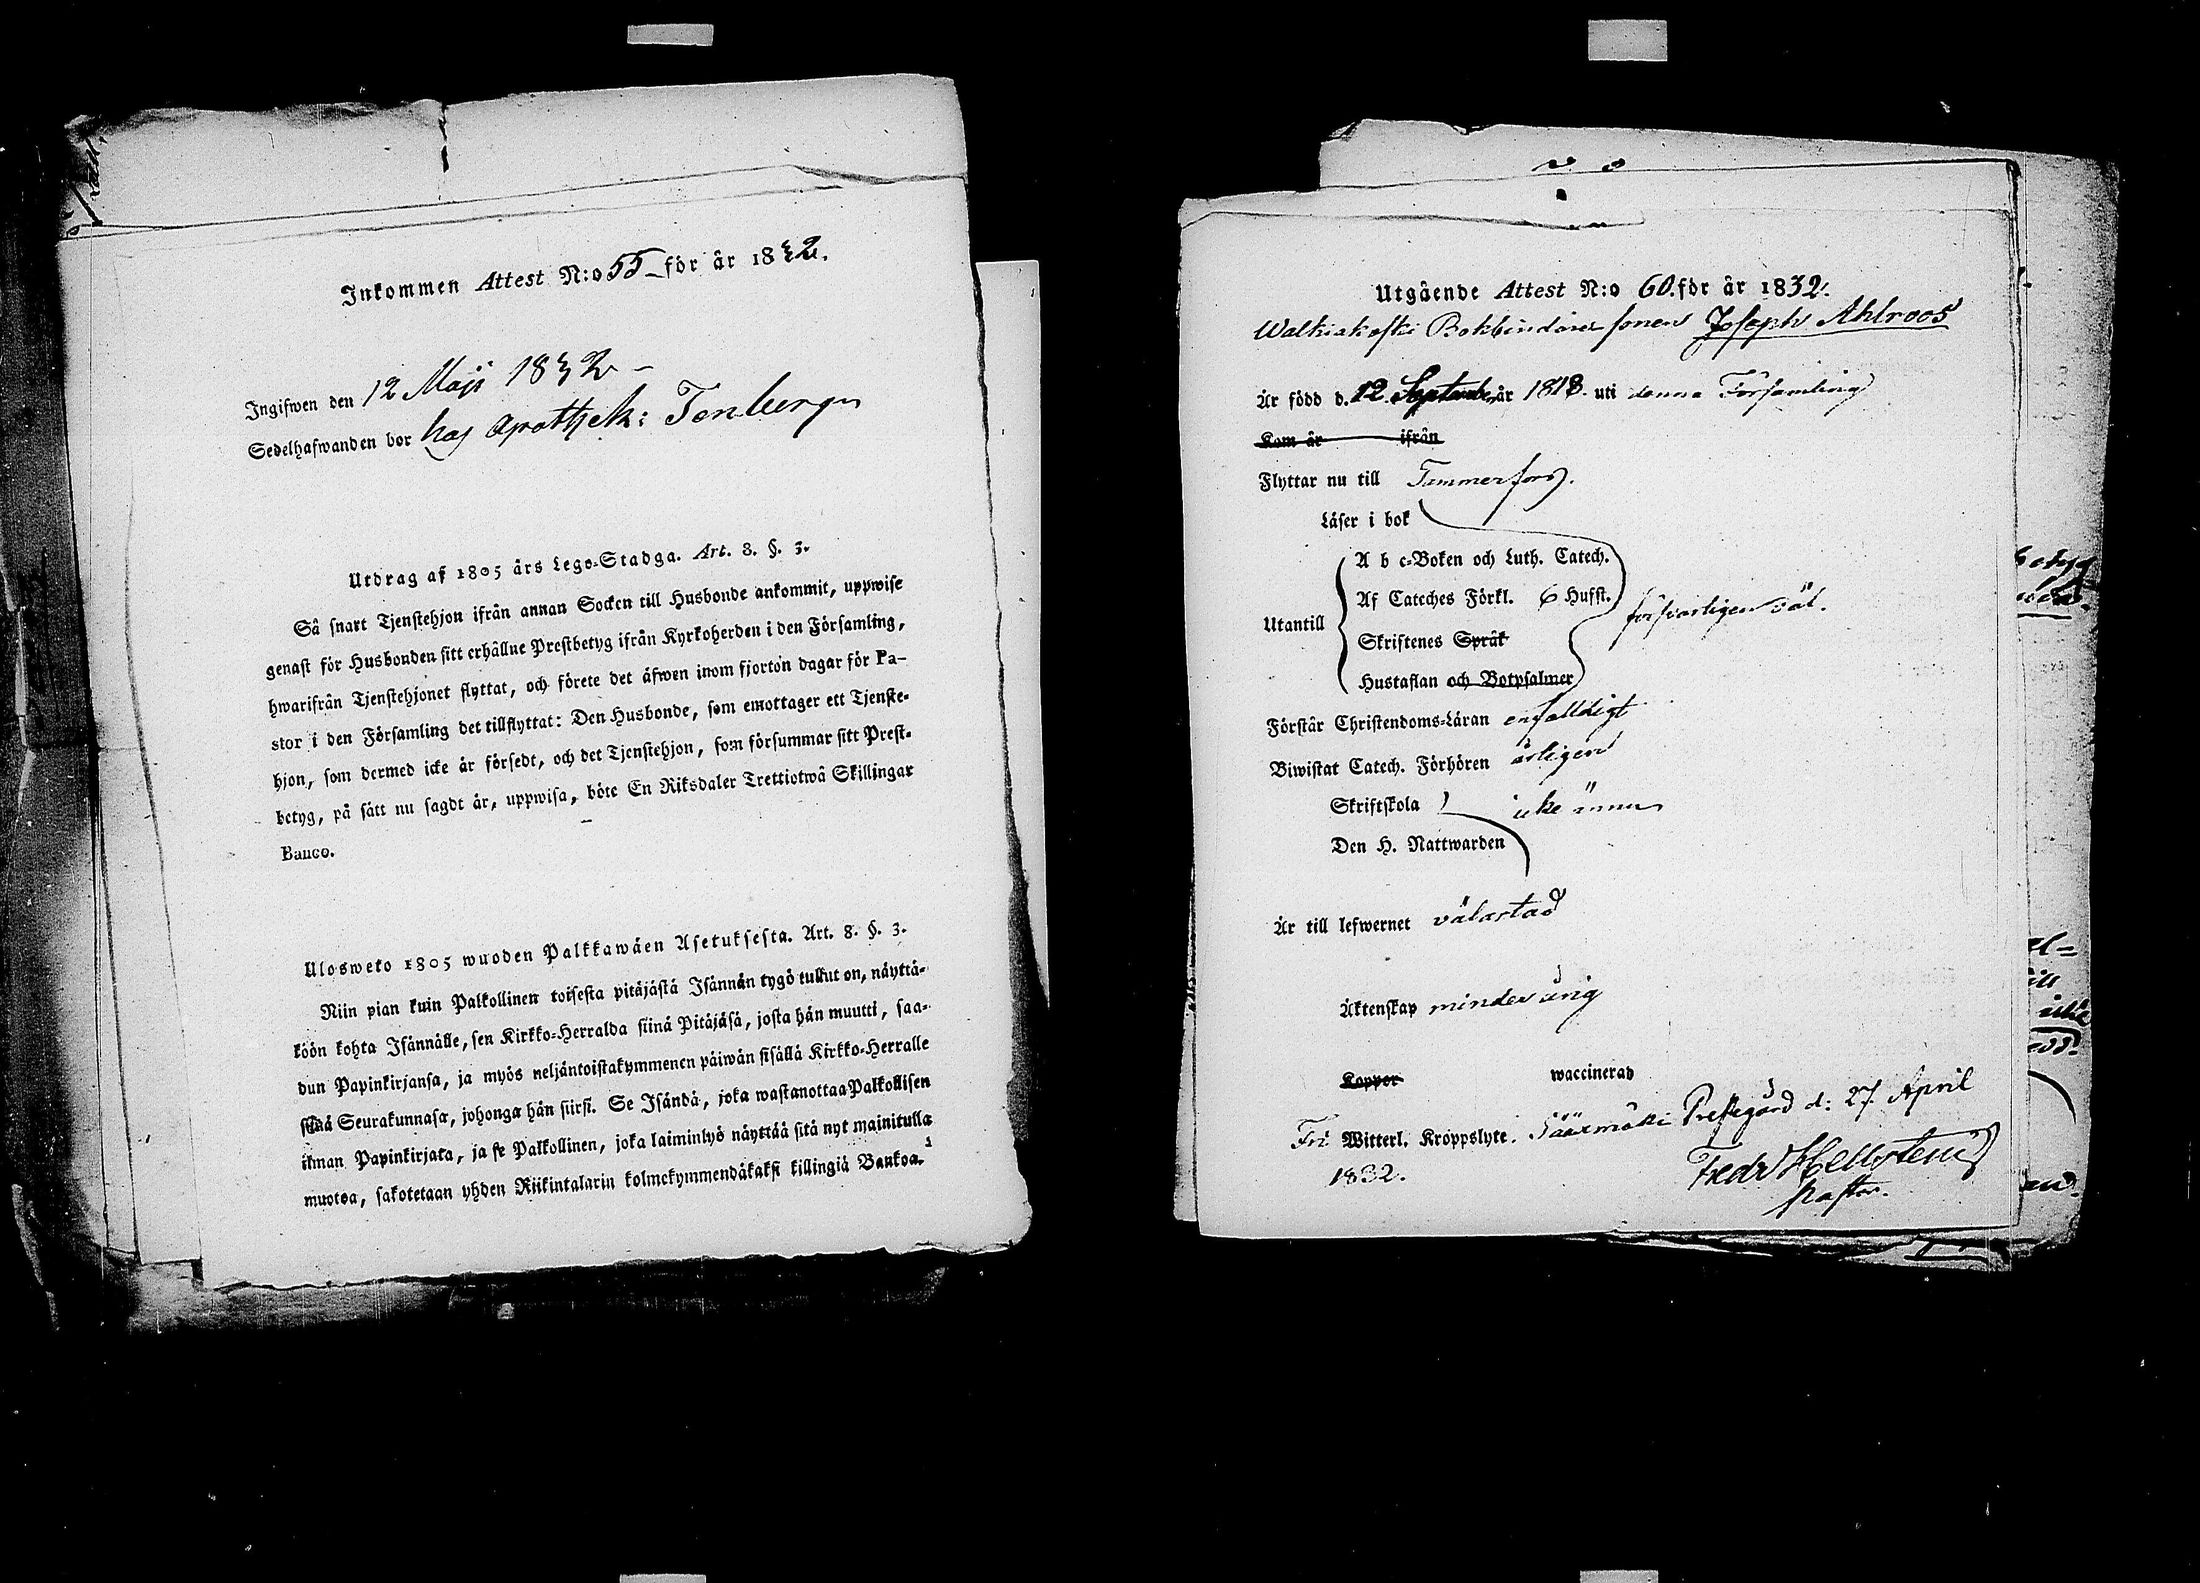 Inkommen Attest N:o 55 för år 1832.
Ingifwen den 12 Maji 1832
Sedelhafwanden bor hos Apothek: Tenberg
Utdrag af 1805 års Lego-Stadga. Art. 8. §. 3.
Så snart Tjenstehjon ifrån annan Socken till Husbonde ankommit, uppwise
genast för Husbonden sitt erhållne Prestbetyg ifrån Kyrkoherden i den Församling,
hwarifrån Tjenstehjonet flyttat, och förete det äfwen inom fjorton dagar för Pa-
stor i den Församling det tillflyttat: Den Husbonde, som emottager ett Tjenste-
hjon, som dermed icke är försedt, och det Tjenstehjon, som försummar sitt Prest-
betyg, på sätt nu sagdt är, uppwisa, böte En Riksdaler Trettiotwå Skillingar
Banco.
Ulosweto 1805 wuoden Palkkawäen Asetuksesta. Art. 8. §. 3.
Niin pian kuin Palkollinen toisesta pitäjästä Isännän tygö tullut on, näyttä-
köön kohta Isännälle, sen Kirkko-Herralda siinä Pitäjäsä, josta hän muutti, saa-
dun Papinkirjansa, ja myös neljäntoistakymmenen päiwän sisällä Kirkko-Herralle
siinä Seurakunnasa, johonga hän siirsi. Se Isändä, joka wastanottaa Palkollisen
ilman Papinkirjata, ja se Palkollinen, joka laiminlyö näyttää sitä nyt mainitulla
muotoa, sakotetaan yhden Riikintalarin kolmekymmendäkaksi killingiä Bankoa.
Utgående Attest N:o 60. för år 1832.
Walkiakoski Bokbindare sonen Joseph Ahlroos
Är född d. 12 September år 1818. uti denna Församling
Kom år ifrån
Flyttar nu till Tammerfors.
Läser i bok
A b c-Boken och Luth. Catech.
Af Cateches Förkl. 6 Hufst.
försvarligen väl.
Utantill
Skriftenes Språk
Hustaflan och Botpsalmer
Förstår Christendoms-Läran enfalldigt
Biwistat Catech. Förhören årligen
Skriftskola
icke ännu
Den H. Nattwarden
Är till lefwernet välartad
Äktenskap minderårig
Koppor waccinerad
Fri Witterl. Kroppslyte. Säärmäki Prestegård d: 27 April
1832.
Fredr Hellsteniu
pastor.